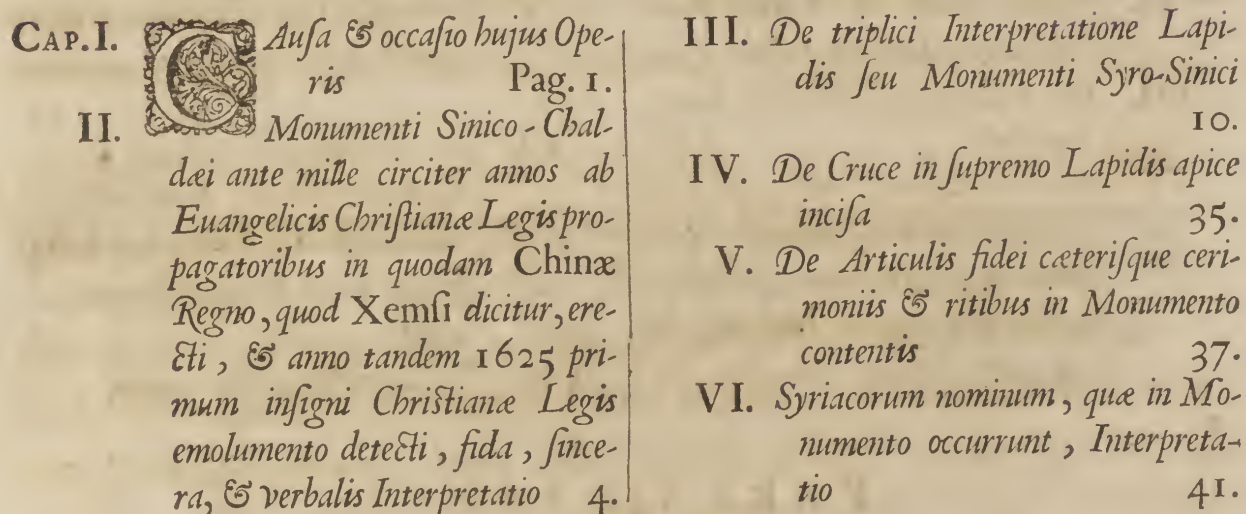 CAP. I. CAuſa & occaſio hujus Ope-
ris Pag. 1.
II. Monumenti Sinico-Chal-
dæi ante mille circiter annos ab
Euangelicis Chriſtianæ Legis pro-
pagatoribus in quodam Chinæ
Regno, quod Xemſi dicitur, ere-
cti, & anno tandem 1625 pri-
mum inſigni Chriſtianæ Legis
emolumento detecti, fida, ſince-
ra, & verbalis Interpretatio 4.
III. De triplici Interpretatione Lapi-
dis ſeu Monumenti Syro-Sinici
10.
IV. De Cruce in ſupremo Lapidis apice
inciſa 35.
V. De Articulis fidei cæteriſque ceri-
moniis & ritibus in Monumento
contentis 37.
VI. Syriacorum nominum, quæ in Mo-
numento occurrunt, Interpreta-
tio 41.